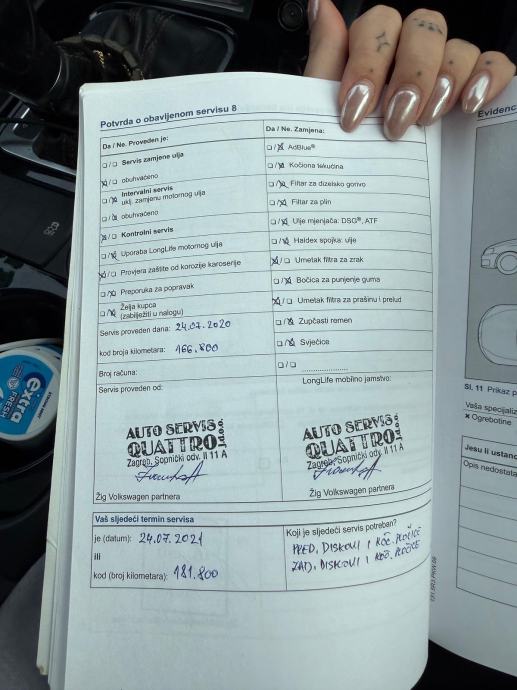 Potvrda o obavljenom servisu 8
Da / Ne. Proveden je:
☐/☐ Servis zamjene ulja
☒/☐ obuhvaćeno
☐/☒ Intervalni servis
uklj. zamjenu motornog ulja
☐/☒ obuhvaćeno
☒/☐ Kontrolni servis
☐/☒ Uporaba LongLife motornog ulja
☒/☐ Provjera zaštite od korozije karoserije
☐/☒ Preporuka za popravak
☐/☒ Želja kupca
(zabilježiti u nalogu)
Servis proveden dana: 24.07.2020
kod broja kilometara: 166.800
Broj računa:
Servis proveden od:
AUTO SERVIS
QUATTRO
Zagreb, Sopnički odv. II 11 A
Žig Volkswagen partnera
Da / Ne. Zamjena:
☐/☒ AdBlue®
☐/☒ Kočiona tekućina
☐/☒ Filtar za dizelsko gorivo
☐/☒ Filtar za plin
☐/☒ Ulje mjenjača: DSG®, ATF
☐/☒ Haldex spojka: ulje
☒/☐ Umetak filtra za zrak
☐/☒ Bočica za punjenje guma
☒/☐ Umetak filtra za prašinu i pelud
☐/☒ Zupčasti remen
☐/☒ Svjećice
☐/☐ ....................
LongLife mobilno jamstvo:
AUTO SERVIS
QUATTRO
Zagreb, Sopnički odv. II 11 A
Žig Volkswagen partnera
Vaš sljedeći termin servisa
je (datum): 24.07.2021
ili
kod (broj kilometara): 181.800
Koji je sljedeći servis potreban?
PRED. DISKOVI I KOČ. PLOČICE
ZAD. DISKOVI I KOČ. PLOČICE
Evidenc
Sl. 11 Prikaz p
Vaša specijaliz
× Ogrebotine
Jesu li ustano
Opis nedostata
extra
FRESH